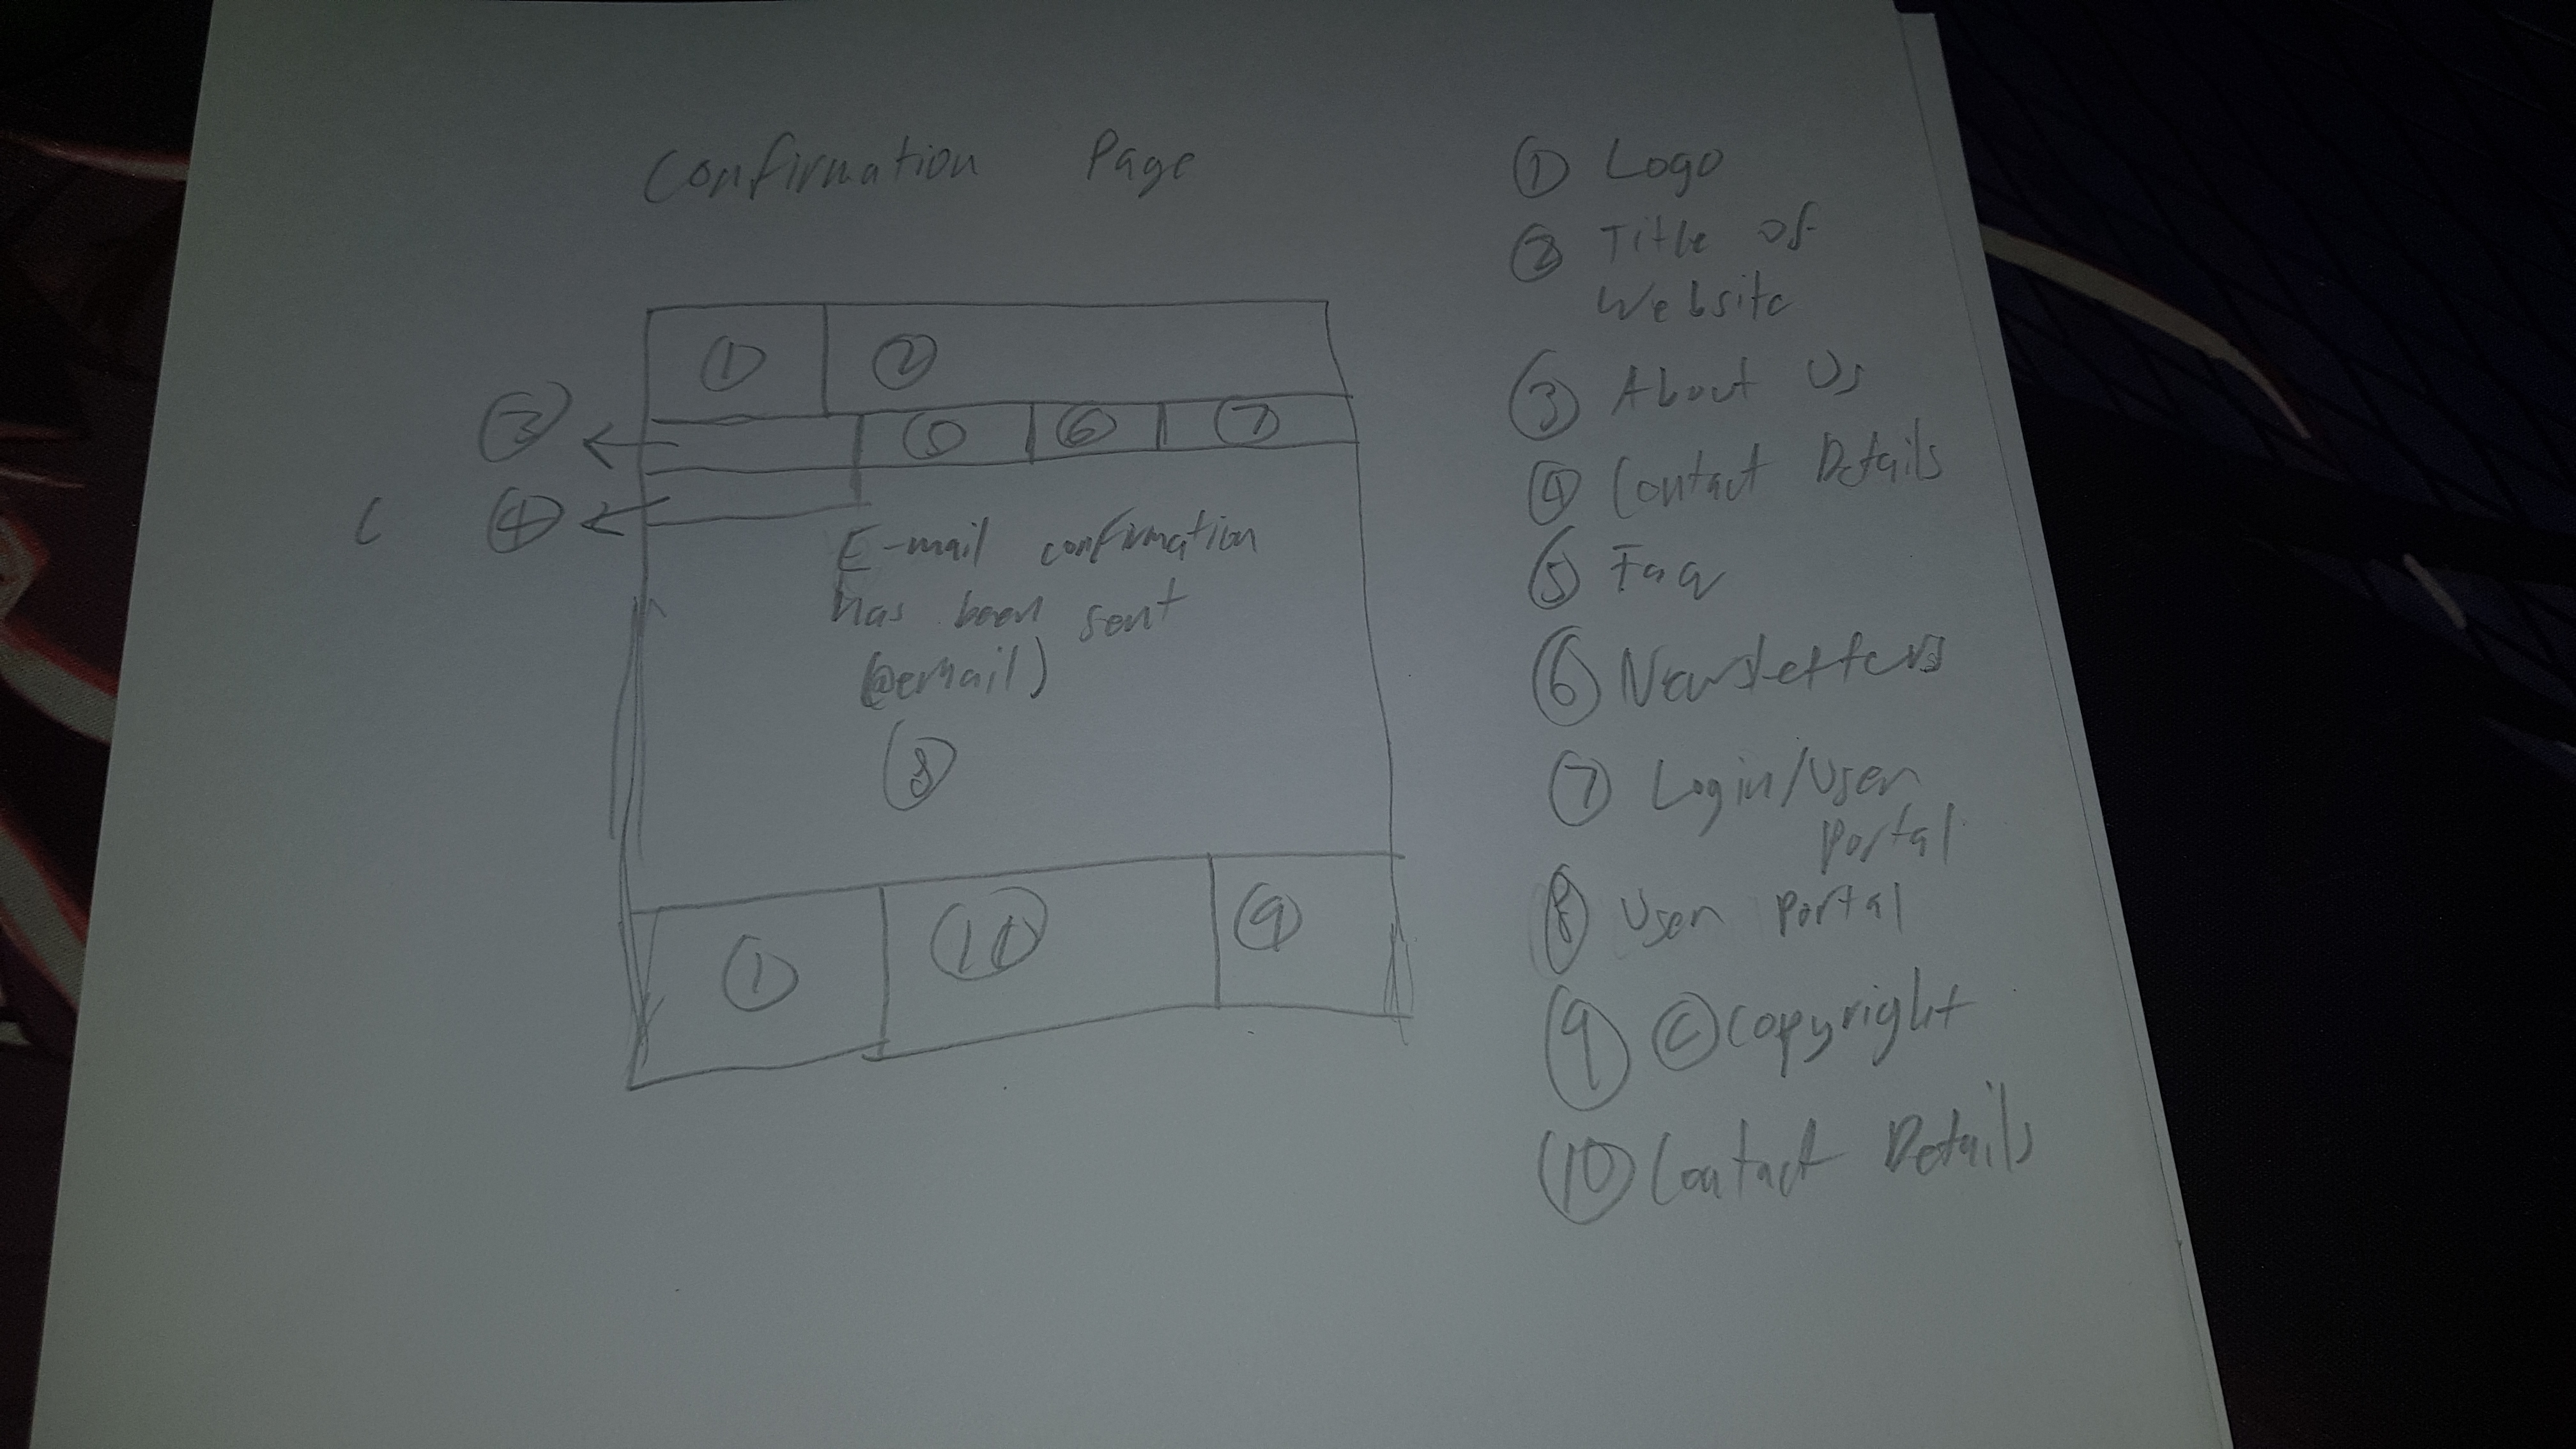 Confirmation Page
① ②
③ ⑤ ⑥ ⑦
④
E-mail confirmation
has been sent
(@email)
⑧
① ⑩ ⑨
① Logo
② Title of
Website
③ About Us
④ Contact Details
⑤ Faq
⑥ Newsletters
⑦ Login/User
Portal
⑧ User Portal
⑨ © Copyright
⑩ Contact Details